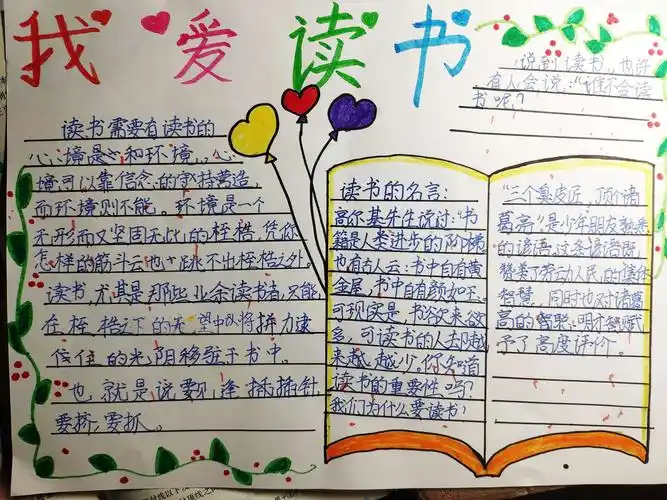 我爱读书
说到读书,也许
有人会说:“谁不会读
书呢?
读书需要有读书的
心境是心和环境。心
境可以靠信念的守持营造,
而环境则不能。环境是一个
无形而又坚固无比的桎梏,凭你
怎样的筋斗云也跳不出桎梏之外
读书,尤其是那些业余读书者,只能
在桎梏之下的
信住的光阴移驻于书中。
也就是说要见缝插插针
要挤,要抓。
读书的名言:
高尔基先生说过:“书
籍是人类进步的阶梯
也有古人云:书中自有黄
金屋,书中自有颜如玉。
可现实是书欲来欲
多,可读书的人却越
来越越少。你知道
读书的重要性吗?
我们为什么要读书!
“三个臭皮匠,顶个诸
葛亮”是少年朋友熟悉
的谚语,这条谚语既
赞美了劳动人民的集体
智慧,同时也对诸葛
高的智聪、明才智赋
予了高度评价。